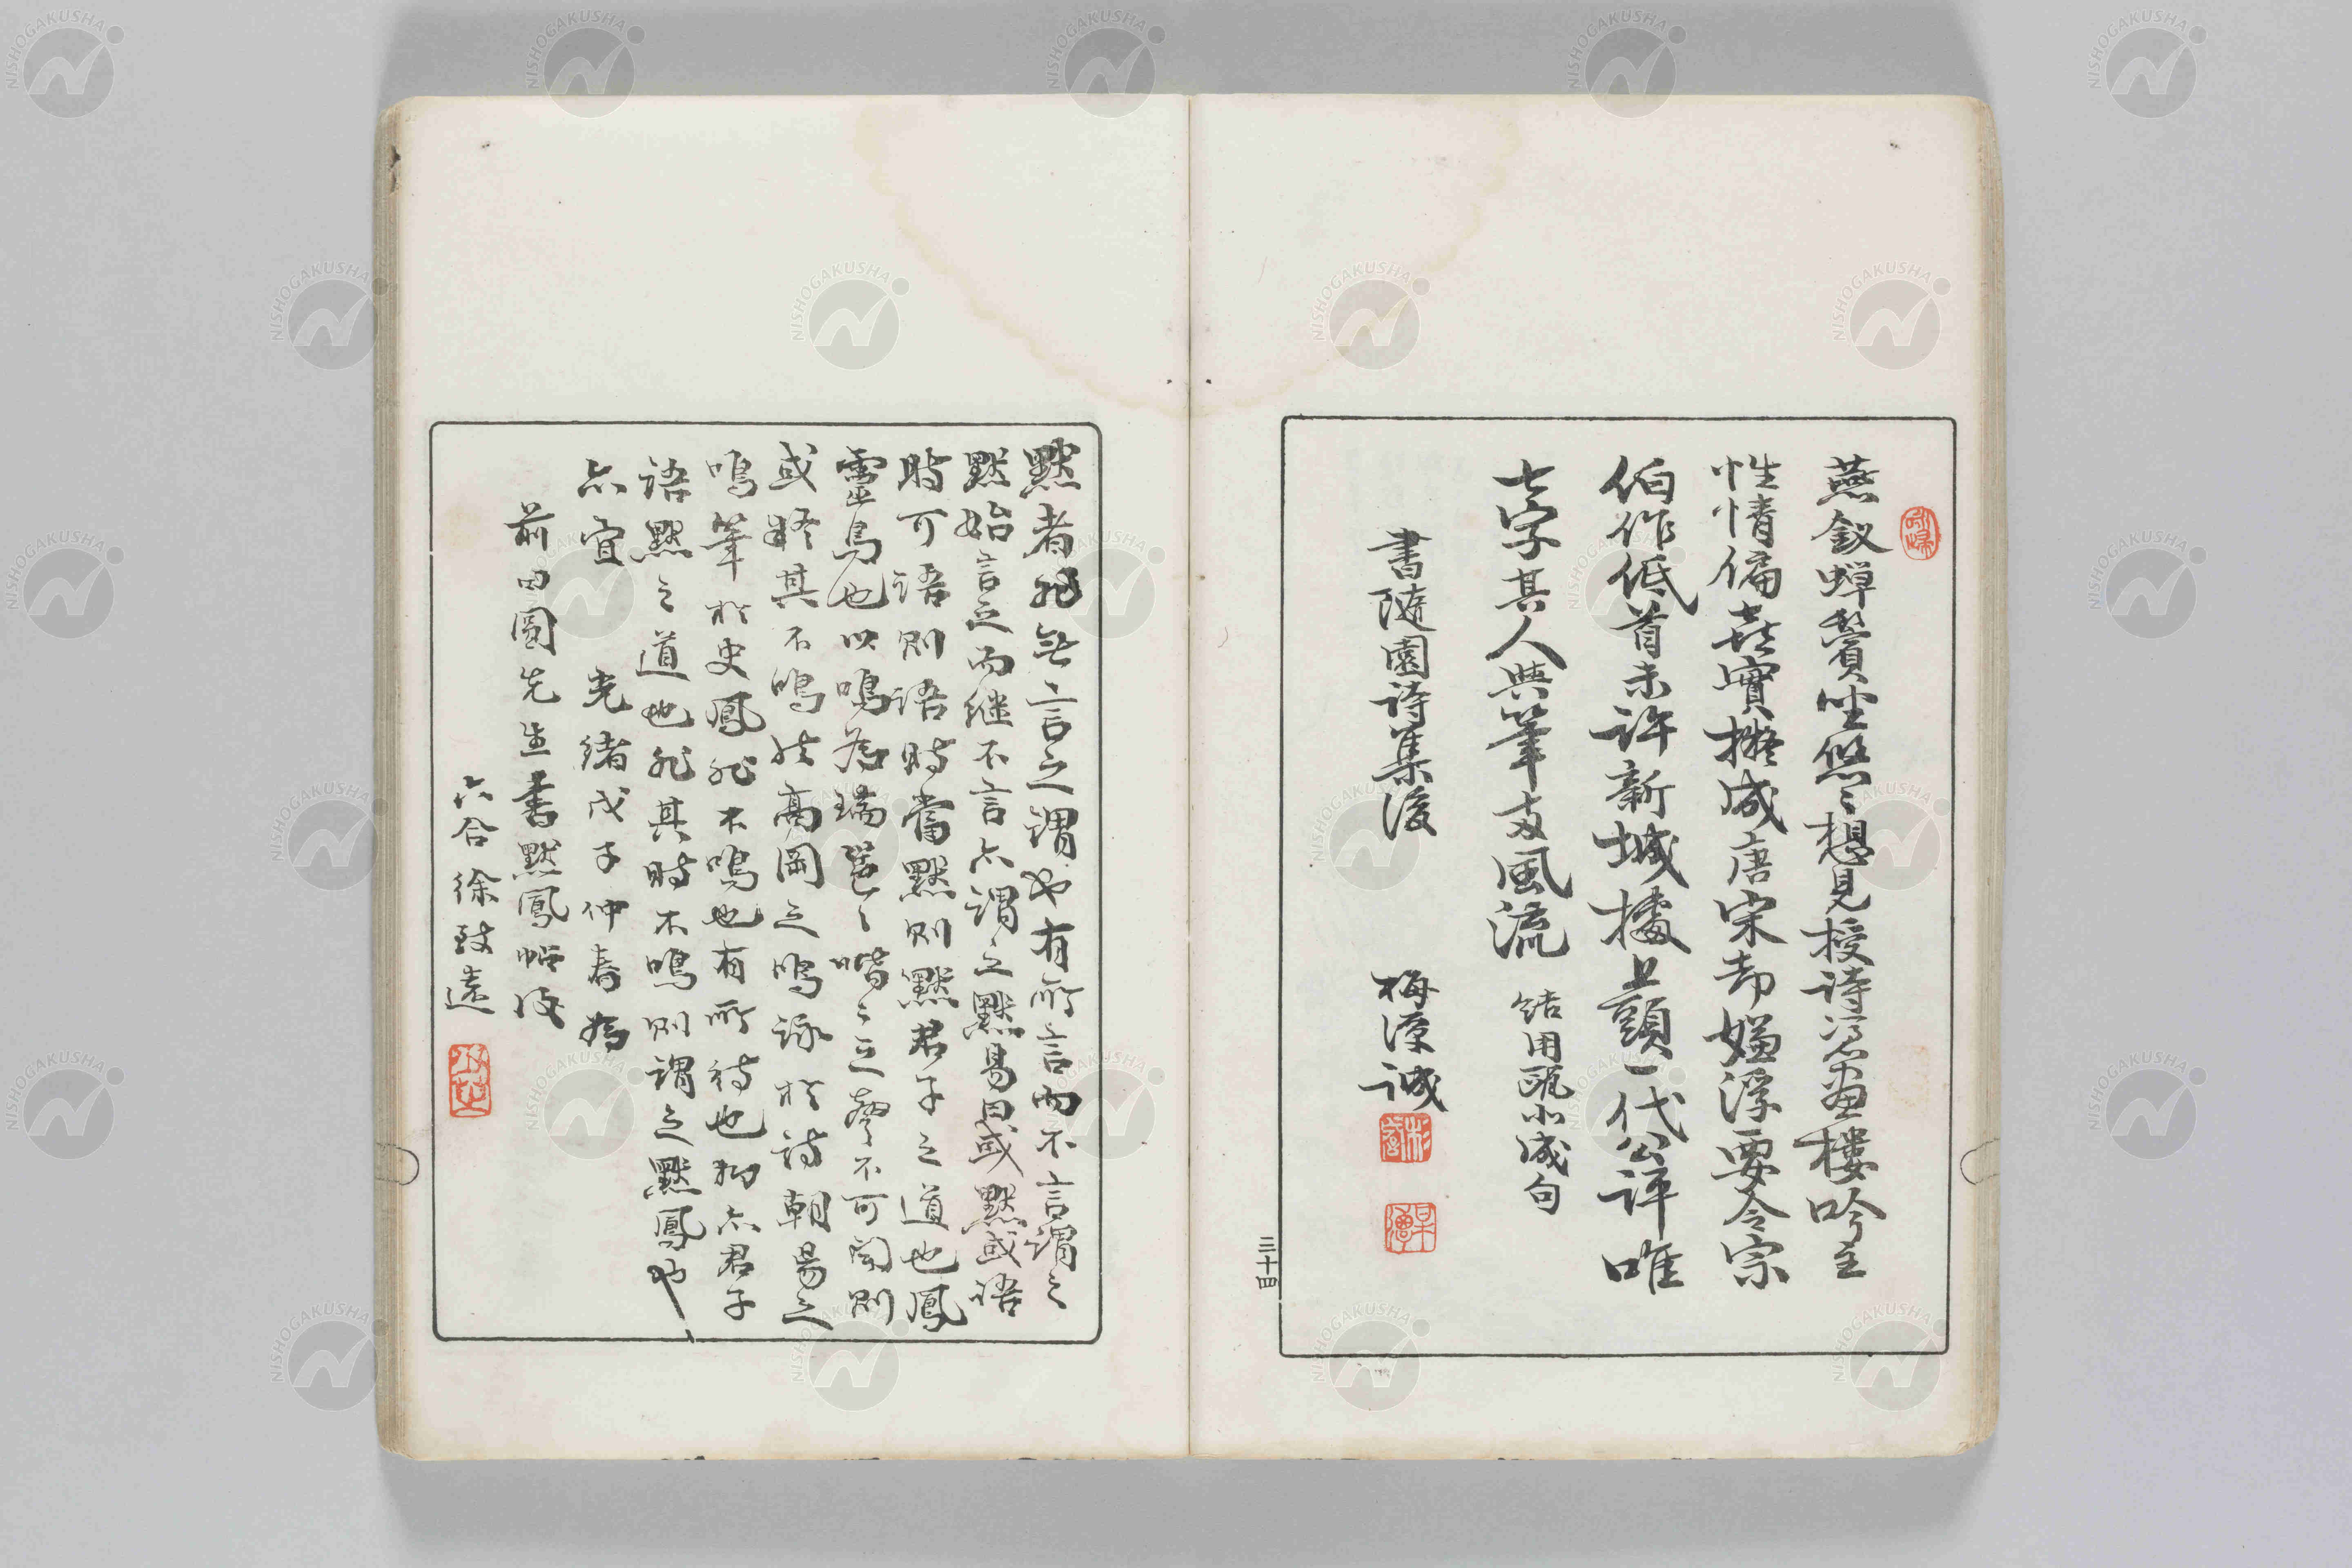 燕釵蟬鬢坐悠〻想見授詩凭畫樓吟主
性情偏喜實摧成唐宋却嫌浮要令宗
伯作低首未許新城據上頭一代公評唯
七字其人與筆両風流 結用甌北成句
書随園詩集後
梅源誠
三十四
黙者非無言之謂也有所言而不言謂之
黙始言之而継不言亦謂之黙易曰或黙或語
時可語則語時當黙則黙君子之道也鳳
靈鳥也以鳴為瑞噰〻喈〻之聲不可聞則
或疑其不鳴然高岡之鳴詠於詩朝陽之
鳴筆於史鳳非不鳴也有所待也抑亦君子
語黙之道也非其時不鳴則謂之黙鳳也
亦宜 光緒戊子仲春為
前田圓先生書黙鳳帖後
六合徐致遠
NISHOGAKUSHA